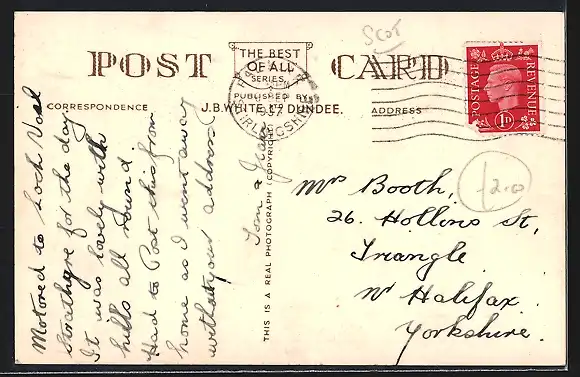 SCOT
POST CARD
THE BEST
OF ALL
SERIES
CORRESPONDENCE
PUBLISHED BY
J.B. WHITE LTD DUNDEE.
ADDRESS
STIRLINGSHIRE
POSTAGE
REVENUE
1D
THIS IS A REAL PHOTOGRAPH (COPYRIGHT)
Motored to Loch Voal
Strathyre for the day.
It was lovely with
hills all round
Had to Post this from
home as I went away
without your address
Tom & Jean
£2.0
Mrs Booth,
26. Hollins St,
Triangle
Nr Halifax.
Yorkshire.